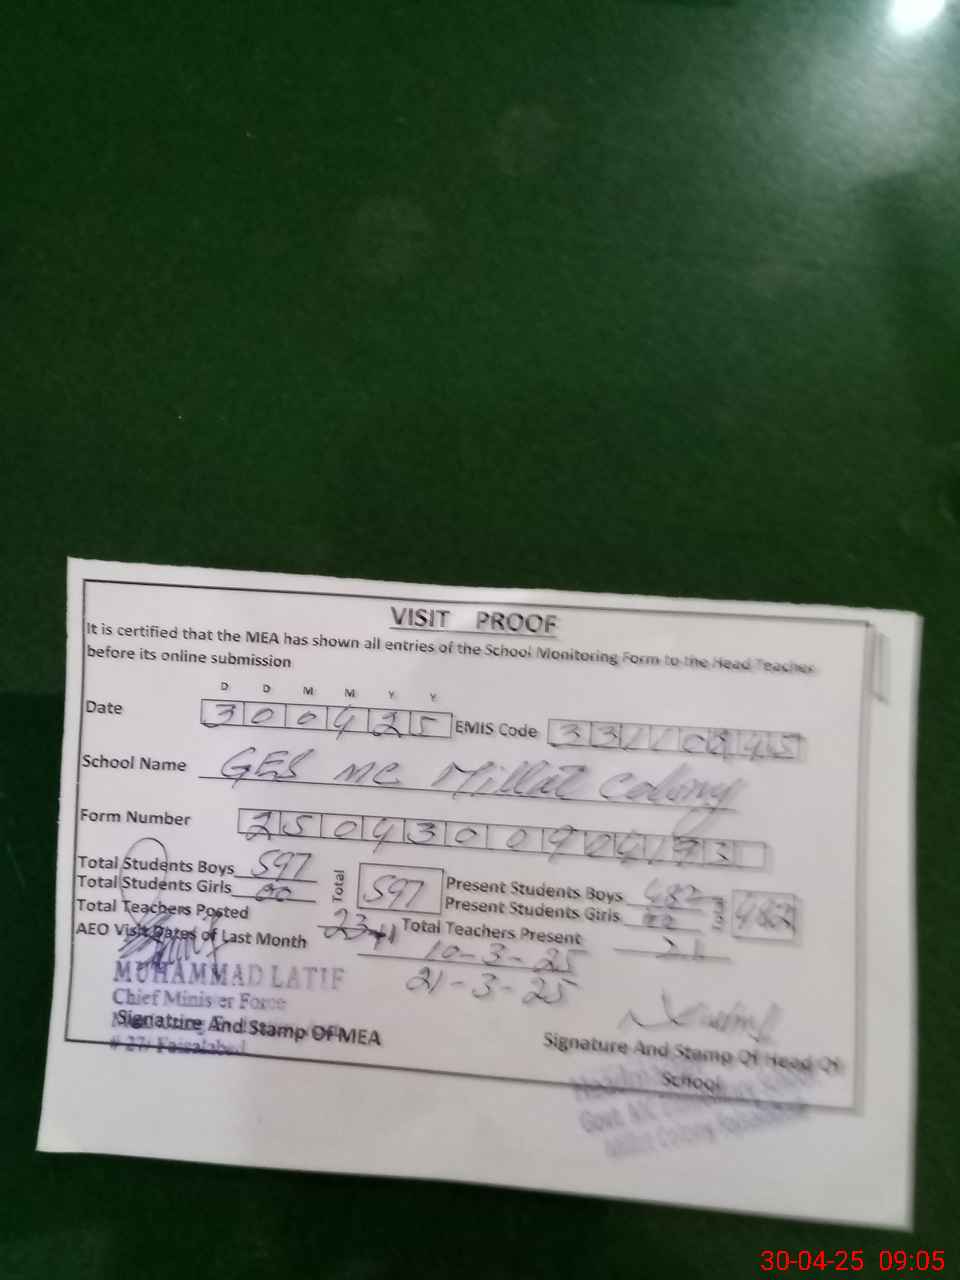 VISIT PROOF
It is certified that the MEA has shown all entries of the School Monitoring Form to the Head Teacher
before its online submission
D D M M Y Y
Date 300425 EMIS Code
School Name GES MC Millat Colony
Form Number
Total Students Boys 597 Total 597 Present Students Boys 482 482
Total Students Girls 00 Present Students Girls
Total Teachers Posted 23+1 Total Teachers Present 21
AEO Visit Dates of Last Month 10-3-25
21-3-25
MUHAMMAD LATIF
Chief Minister Force
Signature And Stamp Of MEA
# 27/ Faisalabad
Signature And Stamp Of Head Of
School
Millat Colony Faisalabad
30-04-25 09:05